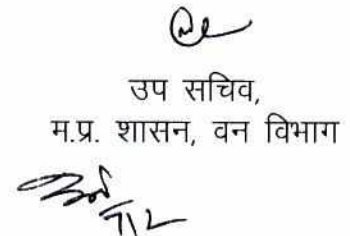 उप सचिव,
म.प्र. शासन, वन विभाग
7/2